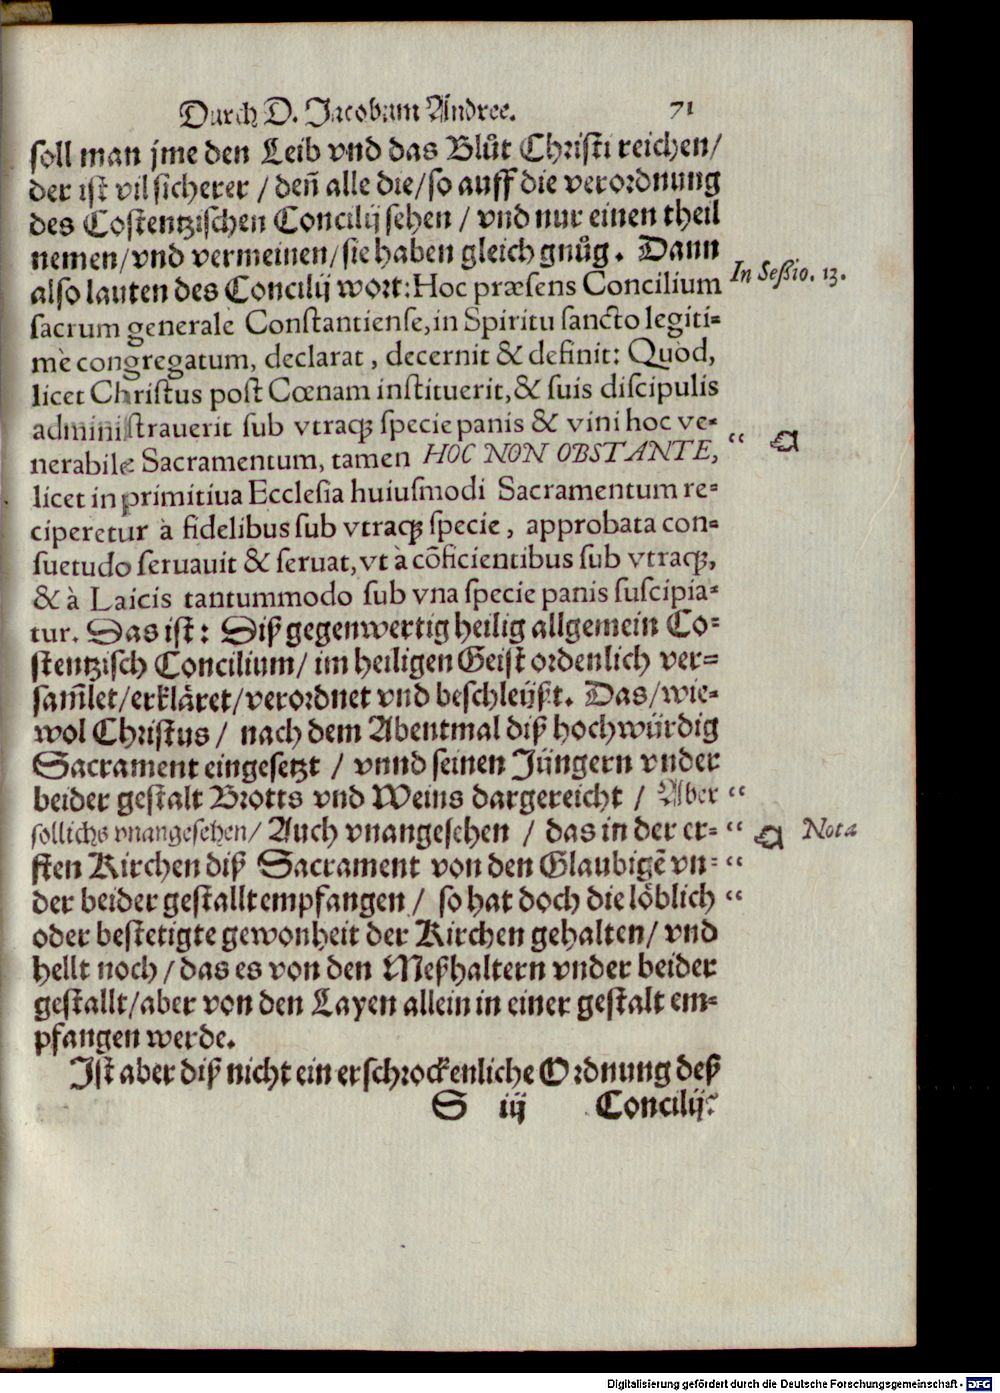 Durch D. Jacobum Andree. 71
soll man jme den Leib vnd das Blůt Christi reichen/
der ist vil sicherer / deñ alle die/so auff die verordnung
des Costentzischen Concilij sehen / vnd nur einen theil
nemen/vnd vermeinen/sie haben gleich gnůg. Dann
also lauten des Concilij wort: Hoc præsens Concilium
In Seßio. 13.
sacrum generale Constantiense, in Spiritu sancto legiti-
mè congregatum, declarat, decernit & definit: Quòd,
licet Christus post Cœnam instituerit, & suis discipulis
administrauerit sub vtraq; specie panis & vini hoc ve-
nerabile Sacramentum, tamen HOC NON OBSTANTE, “
licet in primitiua Ecclesia huiusmodi Sacramentum re-
ciperetur à fidelibus sub vtraq; specie, approbata con-
suetudo seruauit & seruat, vt à cõficientibus sub vtraq;,
& à Laicis tantummodo sub vna specie panis suscipia-
tur. Das ist: Diß gegenwertig heilig allgemein Co-
stentzisch Concilium/ im heiligen Geist ordenlich ver-
sam̃let/erkläret/verordnet vnd beschleüßt. Das/wie-
wol Christus / nach dem Abentmal diß hochwürdig
Sacrament eingesetzt / vnnd seinen Jüngern vnder
beider gestalt Brotts vnd Weins dargereicht / Aber “
sollichs vnangesehen/ Auch vnangesehen / das in der er- “
Nota
sten Kirchen diß Sacrament von den Glaubigẽ vn- “
der beider gestallt empfangen / so hat doch die löblich “
oder bestetigte gewonheit der Kirchen gehalten/ vnd
hellt noch / das es von den Meßhaltern vnder beider
gestallt/aber von den Layen allein in einer gestalt em-
pfangen werde.
Jst aber diß nicht ein erschrockenliche Ordnung deß
S iij Concilij?
Digitalisierung gefördert durch die Deutsche Forschungsgemeinschaft - DFG